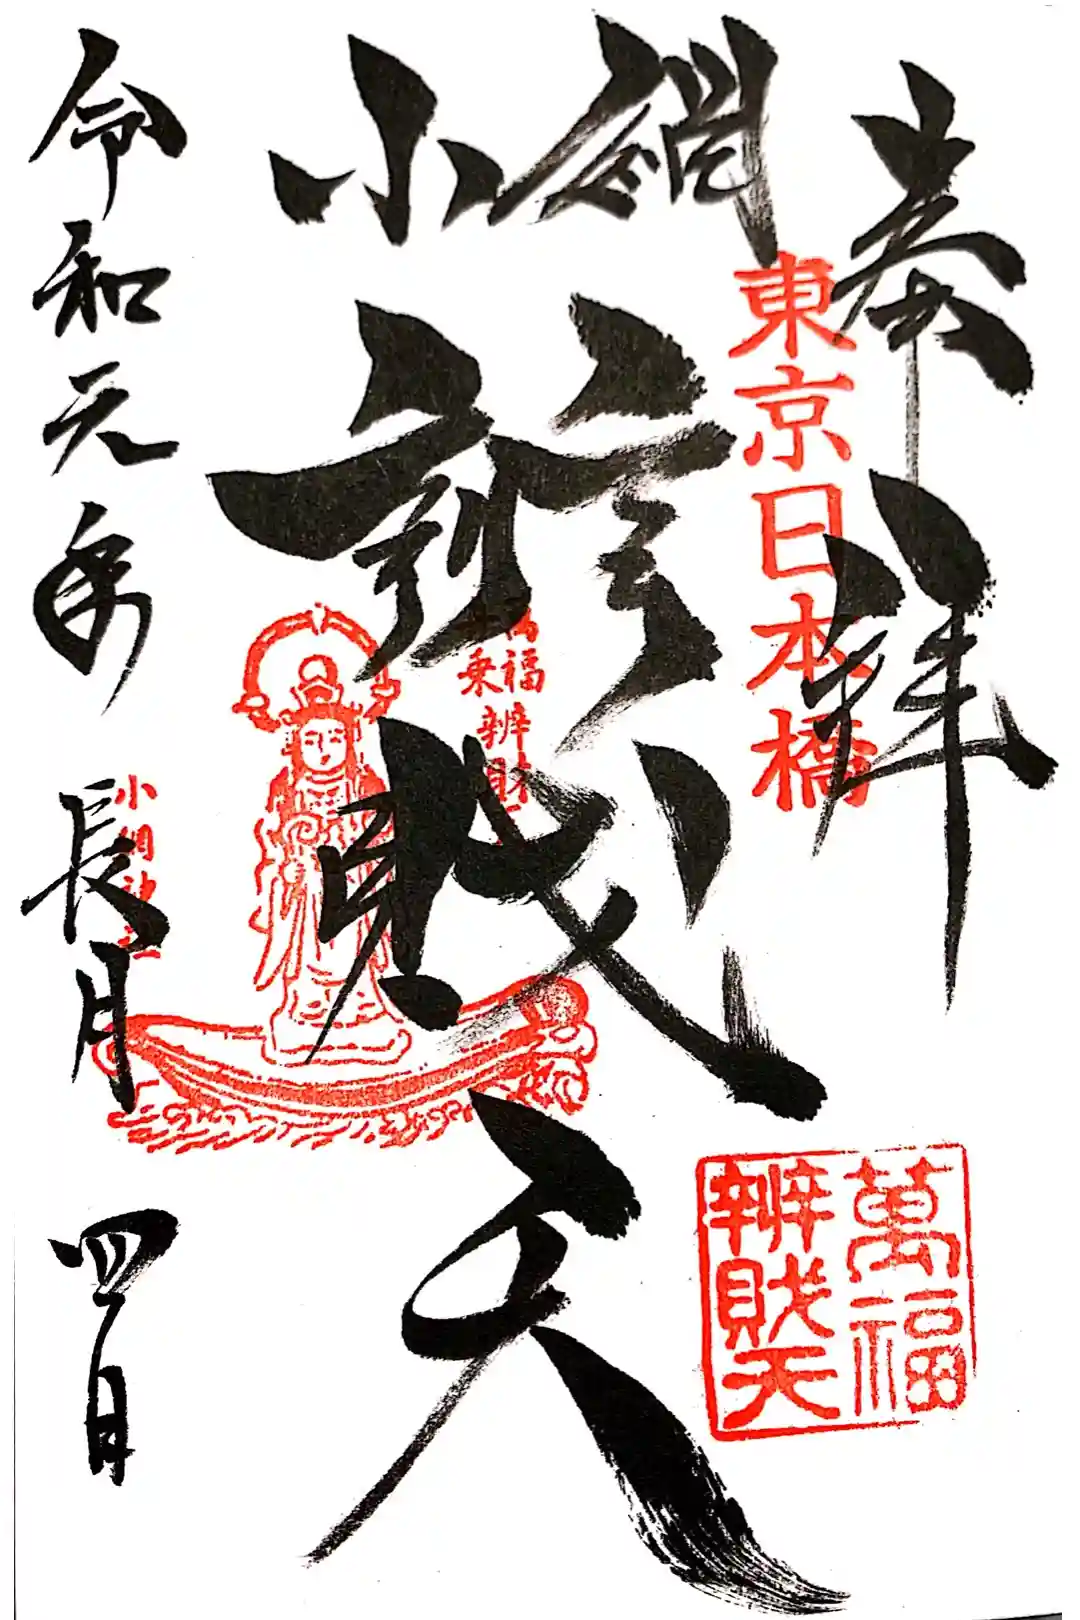 奉拝
東京日本橋
小網
辨財天
萬福
辨財天
萬福
舟乗辨財天
小網神社
令和元年長月四日